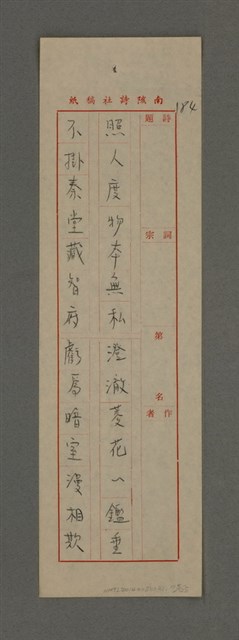 南陔詩社稿紙
184
詩題
詞宗
第 名
作者
照人度物本無私澄澈菱花一鑑垂
不掛秦堂藏智府虧為暗室漫相欺